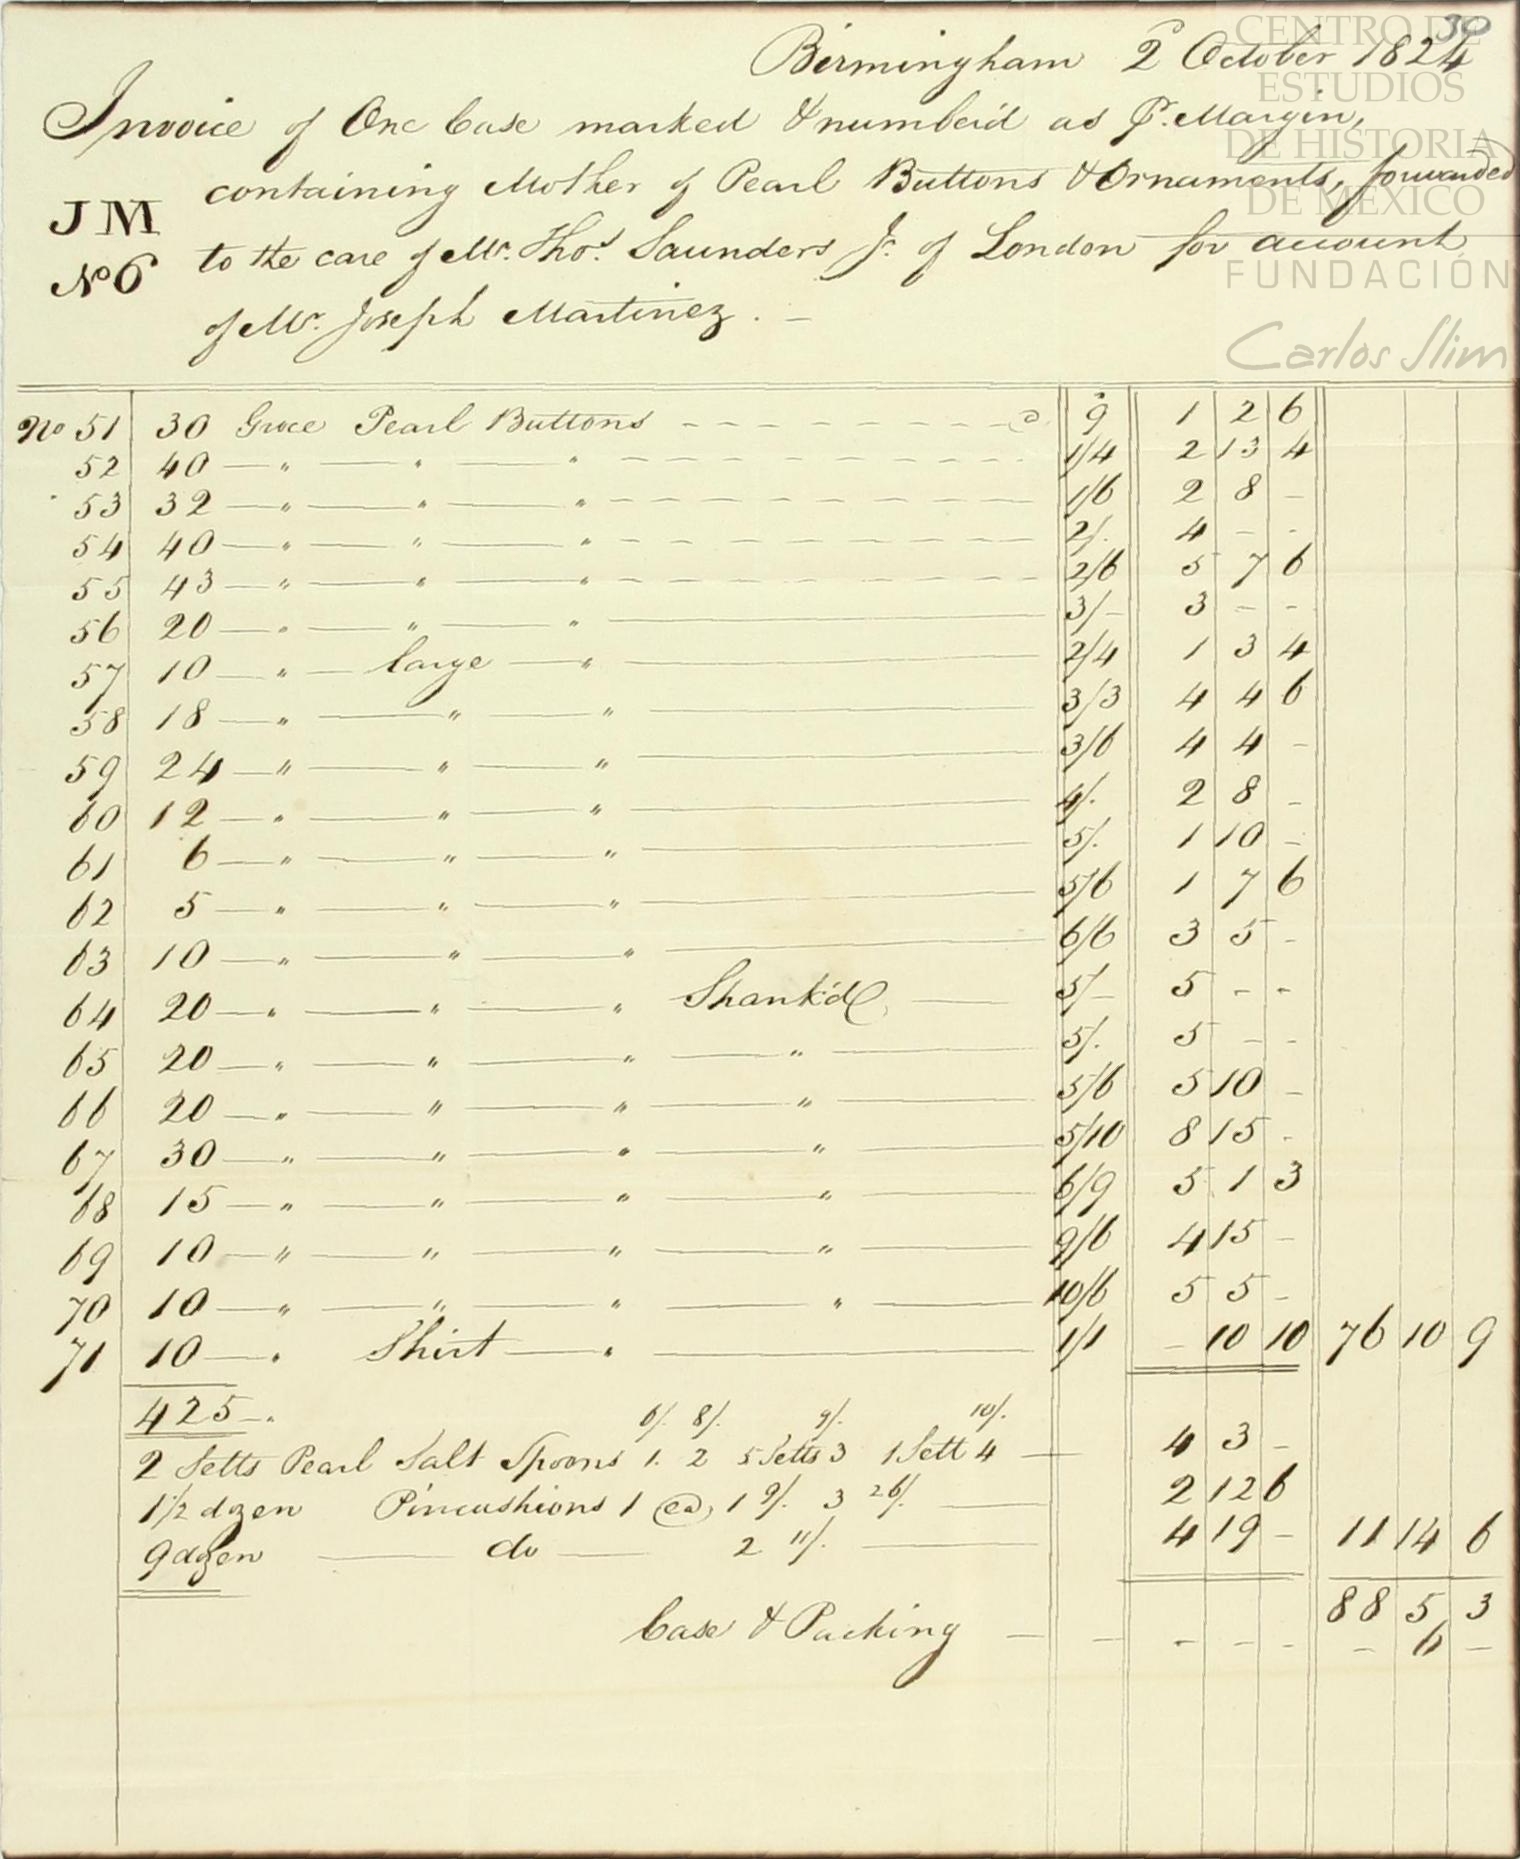 30
CENTRO DE
ESTUDIOS
DE HISTORIA
DE MÉXICO
FUNDACIÓN
Carlos Slim
Birmingham 2 October 1824
Invoice of One Case marked & numberd as Pr. Margin,
containing Mother of Pearl Buttons & Ornaments, forwanded
J M
No 6
to the care of Mr. Thos. Saunders Jr. of London for account
of Mr. Joseph Martinez. –
No 51 30 Groce Pearl Buttons - - - - - - - - @ 9 1 2 6
52 40 — " — " — " - - - - - - - - 1/4 2 13 4
53 32 — " — " — " - - - - - - - - 1/6 2 8 -
54 40 — " — " — " - - - - - - - - 2/. 4 - -
55 43 — " — " — " - - - - - - - - 2/6 5 7 6
56 20 — " — " — " — 3/- 3 - -
57 10 — " — large — " — 2/4 1 3 4
58 18 — " — " — " — 3/3 4 4 6
59 24 — " — " — " — 3/6 4 4 -
60 12 — " — " — " — 4/. 2 8 -
61 6 — " — " — " — 5/. 1 10 -
62 5 — " — " — " — 5/6 1 7 6
63 10 — " — " — " — 6/6 3 5 -
64 20 — " — " — " Shank'd — 5/- 5 - -
65 20 — " — " — " — " — 5/. 5 - -
66 20 — " — " — " — " — 5/6 5 10 -
67 30 — " — " — " — " — 5/10 8 15 -
68 15 — " — " — " — " — 6/9 5 1 3
69 10 — " — " — " — " — 9/6 4 15 -
70 10 — " — " — " — " — 10/6 5 5 -
71 10 — " Shirt — " — 1/1 - 10 10 76 10 9
425 - "
6/. 8/. 9/. 10/.
2 Setts Pearl Salt Spoons 1. 2 5 Setts 3 1 Sett 4 — 4 3 -
1 1/2 dzen Pincushions 1 @ 1 9/. 3 26/. — 2 12 6
9 dzen — do — 2 11/. — 4 19 - 11 14 6
88 5 3
Case & Packing — — - - - - 6 -